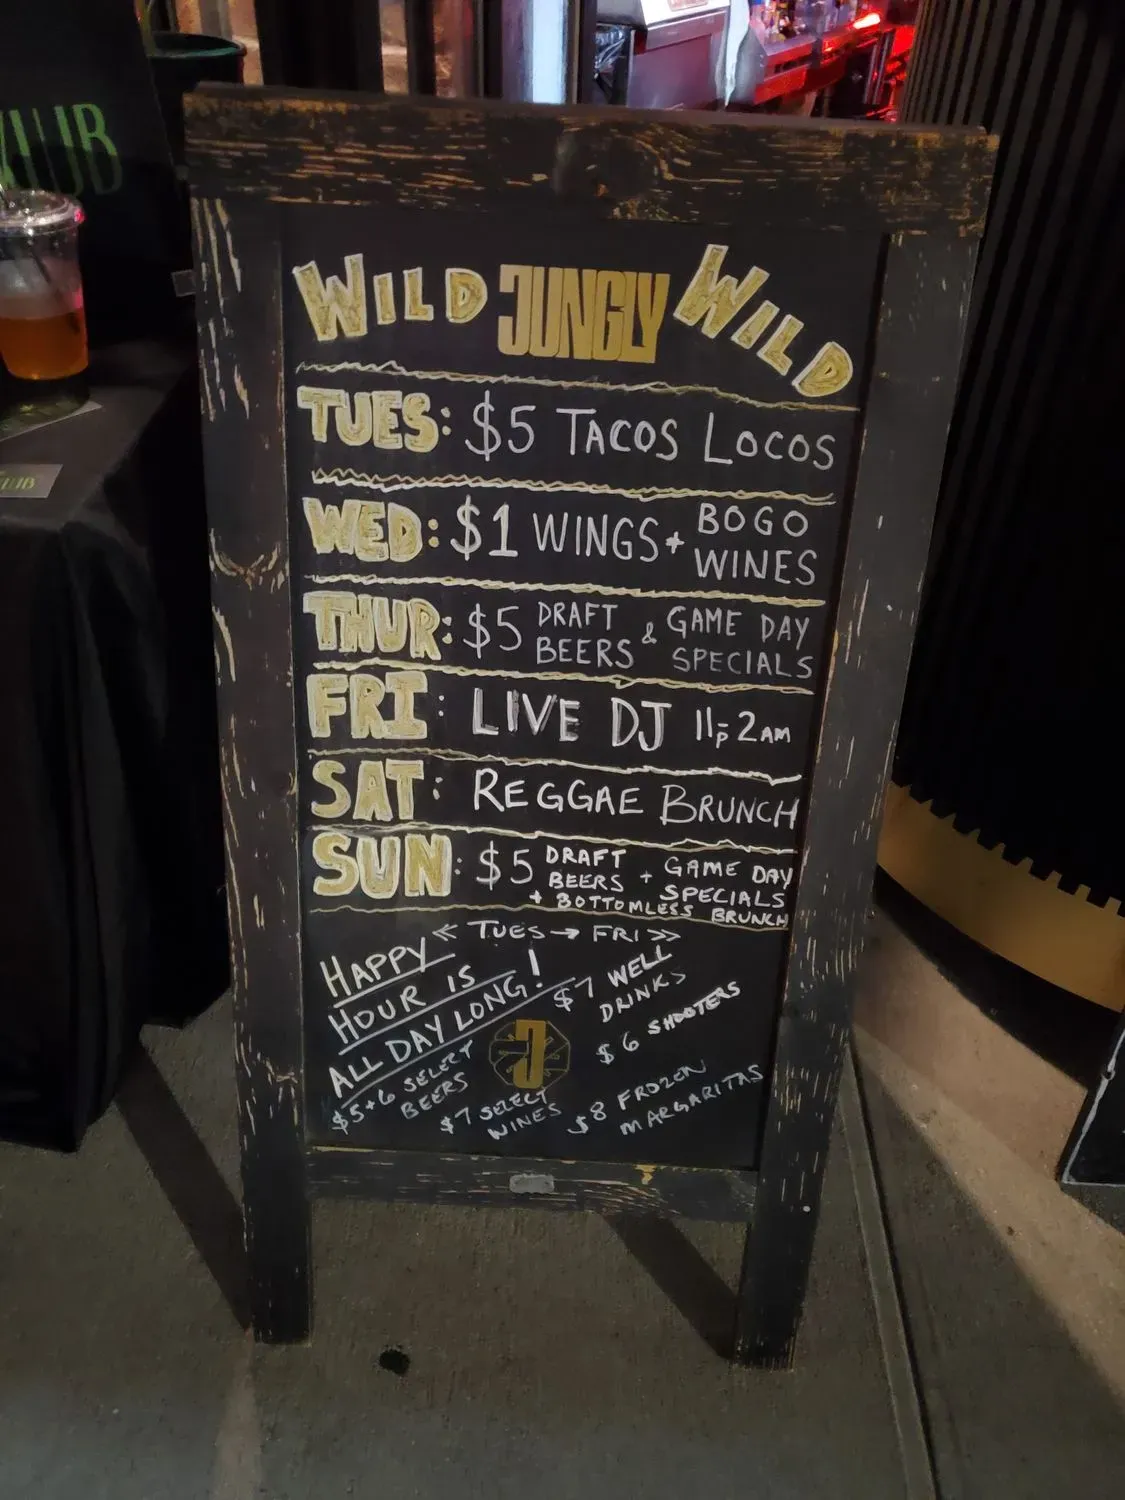 WILD JUNGLY WILD
TUES: $5 TACOS LOCOS
WED: $1 WINGS + BOGO WINES
THUR: $5 DRAFT BEERS & GAME DAY SPECIALS
FRI: LIVE DJ 11P-2AM
SAT: REGGAE BRUNCH
SUN: $5 DRAFT BEERS + GAME DAY SPECIALS
+ BOTTOMLESS BRUNCH
<< TUES → FRI >>
HAPPY
HOUR IS
ALL DAY LONG!
$7 WELL
DRINKS
$6 SHOOTERS
J
$5+6 SELECT
BEERS
$7 SELECT
WINES
$8 FROZEN
MARGARITAS